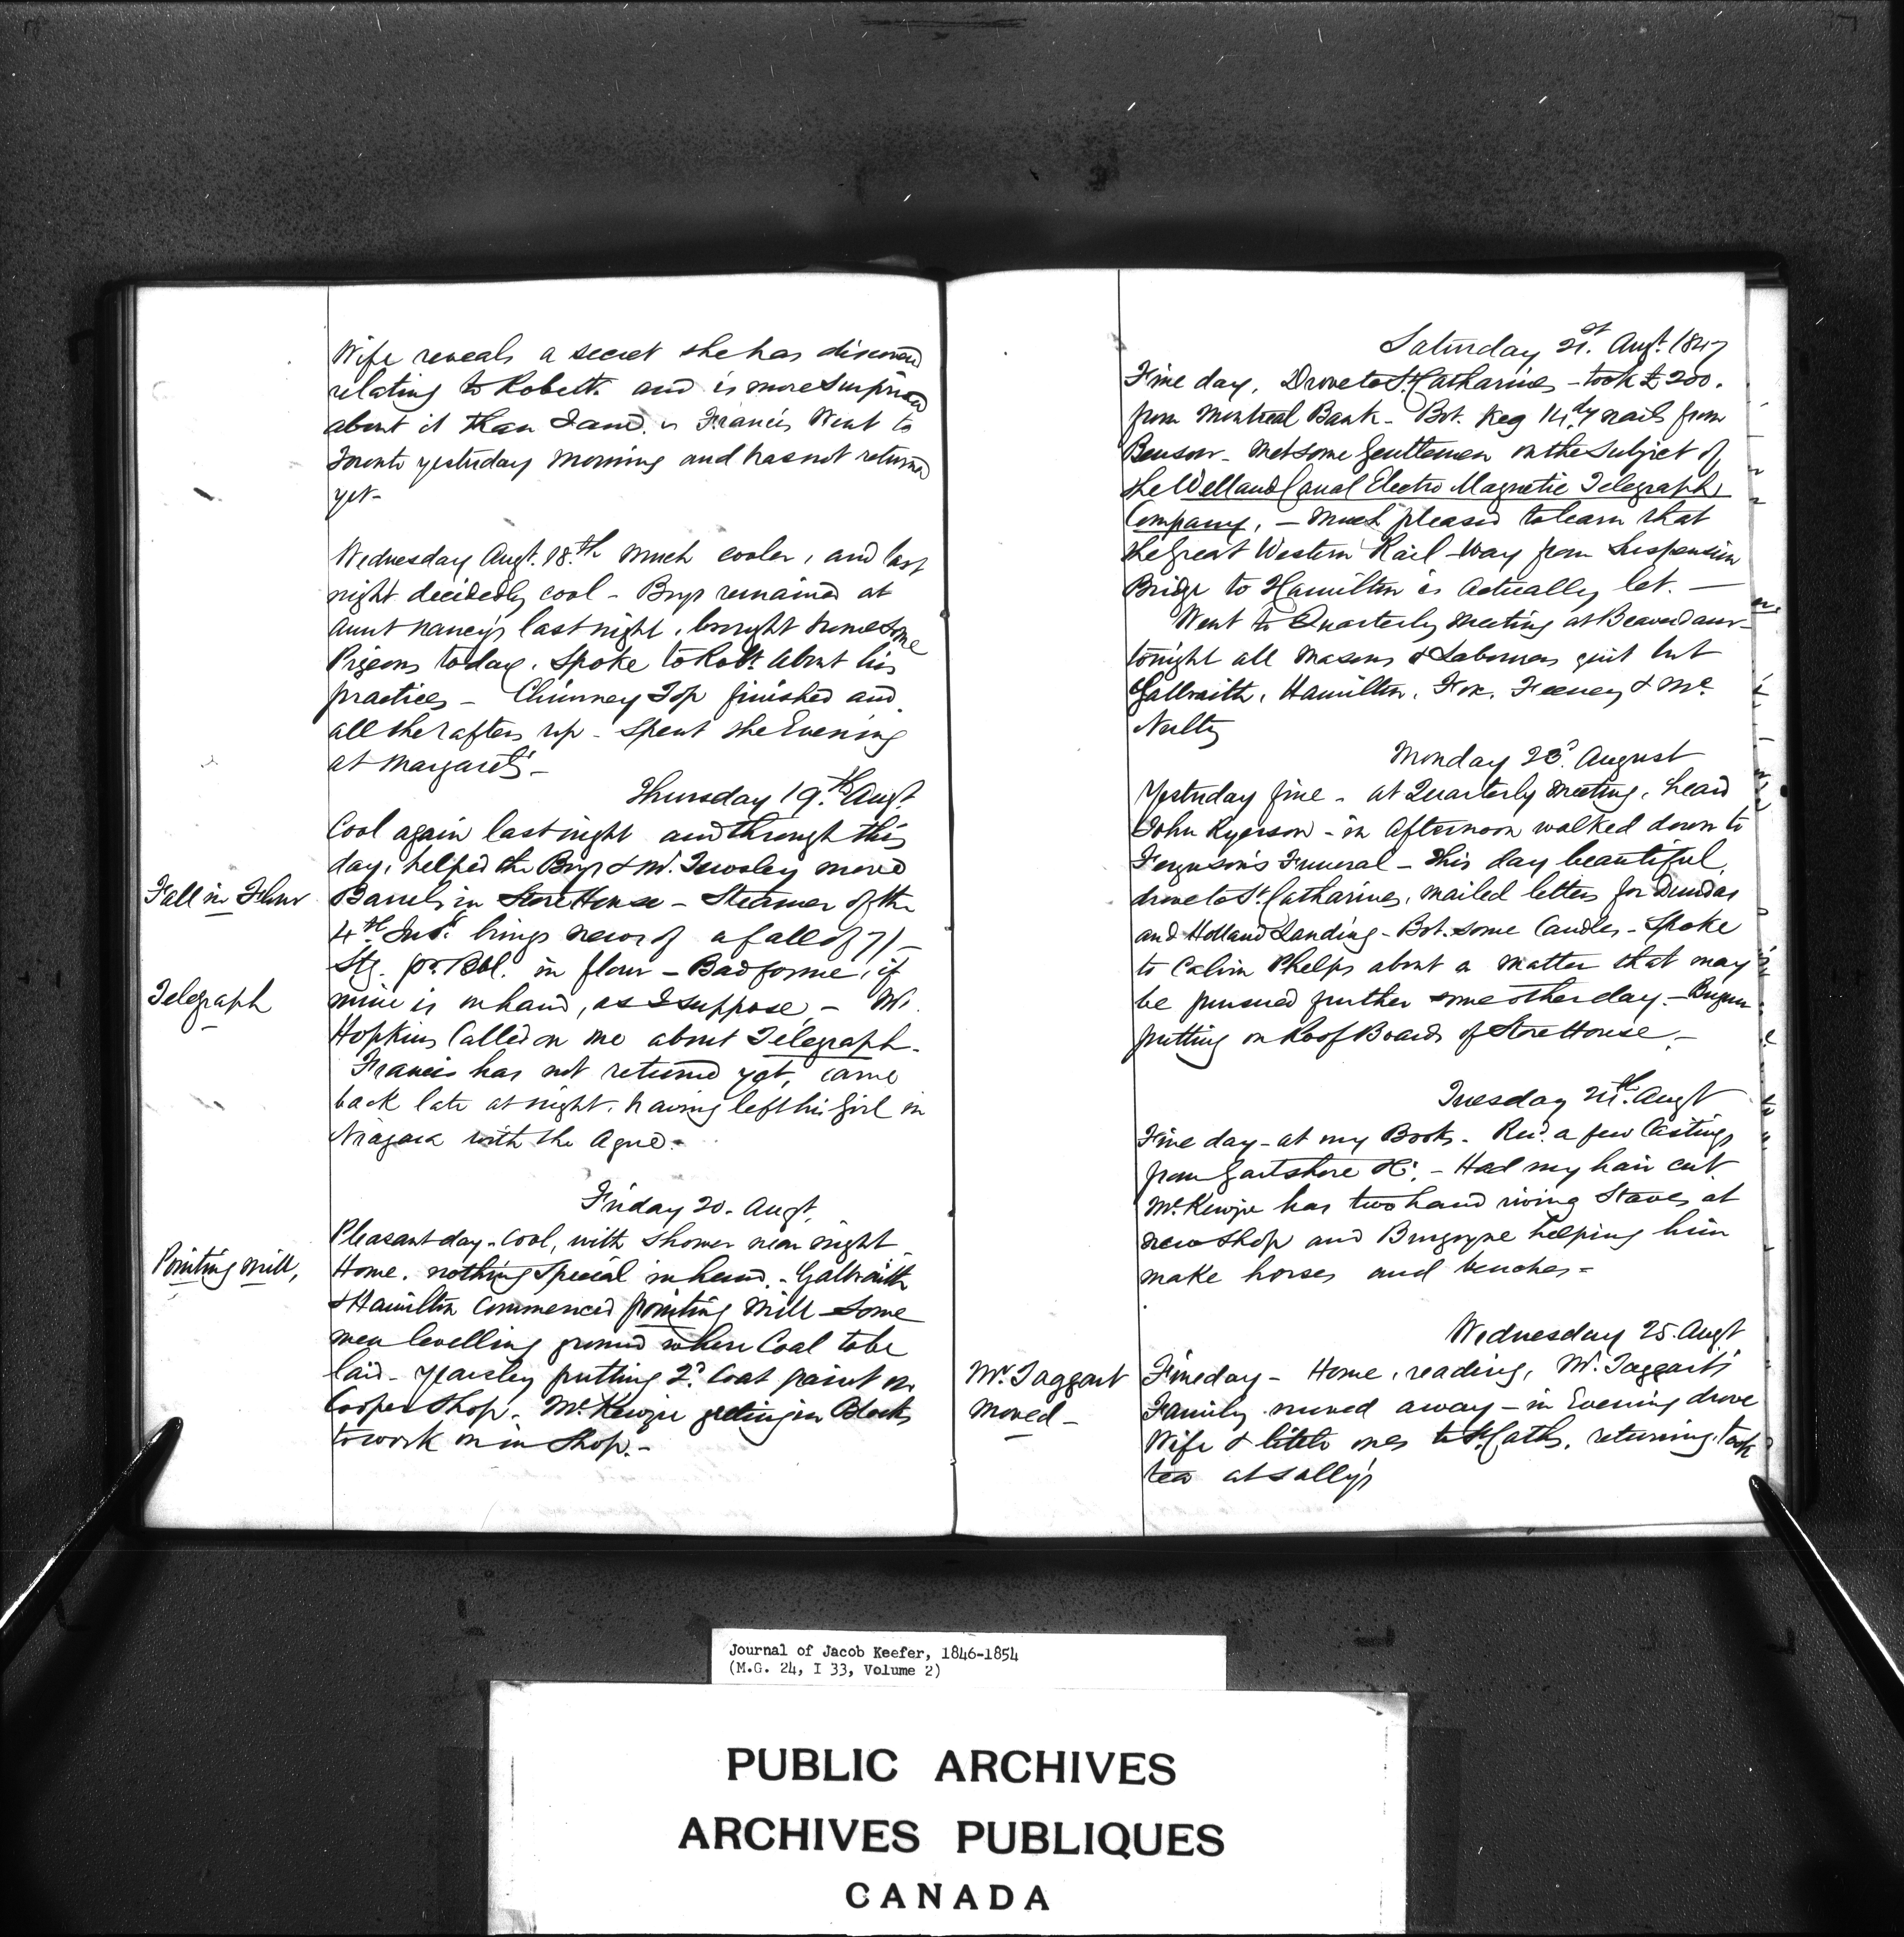 Wife reveals a secret she has discovered
relating to Robert. and is more surprised
about it than I am. Francis Went to
Toronto yesterday Morning and has not returned
yet-
Wednesday Augt. 18.th Much cooler, and last
night decidedly cool - Boys remained at
Aunt Nancy's last night, brought home some
Pigeons today. Spoke to Robt. About his
practices - Chimney Top finished and
all the rafters up - Spent the Evening
at Margaret's -
Thursday 19.th Augt.
Cool again last night and through this
day, helped the Boys & Mr. Towsley move
Fall in Flour
Barrels in Store House - Steamer of the
4th Inst. brings news of a fall of 7/-
Stg. pr. Bbl. in flour - Bad for me, if
Telegraph
mine is on hand, as I suppose, - Mr.
Hopkins Called on me about Telegraph -
Francis has not returned yet, came
back late at night, having left his Girl in
Niagara with the Ague.
Friday 20. Augt.
Pleasant day - Cool, with Shower near night
Pointing Mill,
Home. nothing Special in hand. - Galbraith
& Hamilton Commenced pointing Mill - Some
men levelling ground where Coal to be
laid - Yearsley putting 2d. Coat paint on
Cooper Shop. McKenzie getting in Blocks
to work on in Shop. -
Saturday 21.st Augt. 1847
Fine day, Drove to St. Catharines - took £200.
from Montreal Bank - Bot. Keg 14 dy nails from
Benson - Met some Gentlemen on the Subject of
the Welland Canal Electro Magnetic Telegraph
Company, - Much pleased to learn that
the Great Western Rail-Way from Suspension
Bridge to Hamilton is Actually let. -
Went to Quarterly Meeting at Beaverdams -
tonight all Masons & Laborers quit but
Galbraith, Hamilton, Fox, Feeney & Mc
Nulty
Monday 23d. August
Yesterday fine - at Quarterly Meeting, heard
John Ryerson - in Afternoon walked down to
Ferguson's Funeral - This day beautiful,
drove to St. Catharines, mailed letters for Dundas
and Holland Landing - Bot. some Candles - Spoke
to Calvin Phelps about a matter that may
be pursued further some other day. - Begun
putting on Roof Boards of Store House. -
Tuesday 24.th Augt
Fine day - at my Books - Recd. a few Castings
from Gartshore - Had my hair cut.
McKenzie has two hands riving Staves at
new Shop and Burgoyne helping him
make horses and benches -
Wednesday 25. Augt
Mr. Taggart
Moved -
Fine day - Home, reading, Mr. Taggart's
Family moved away - in Evening drove
Wife & little ones to St. Caths, returning, took
tea at Sally's
Journal of Jacob Keefer, 1846-1854
(M.G. 24, I 33, Volume 2)
PUBLIC ARCHIVES
ARCHIVES PUBLIQUES
CANADA